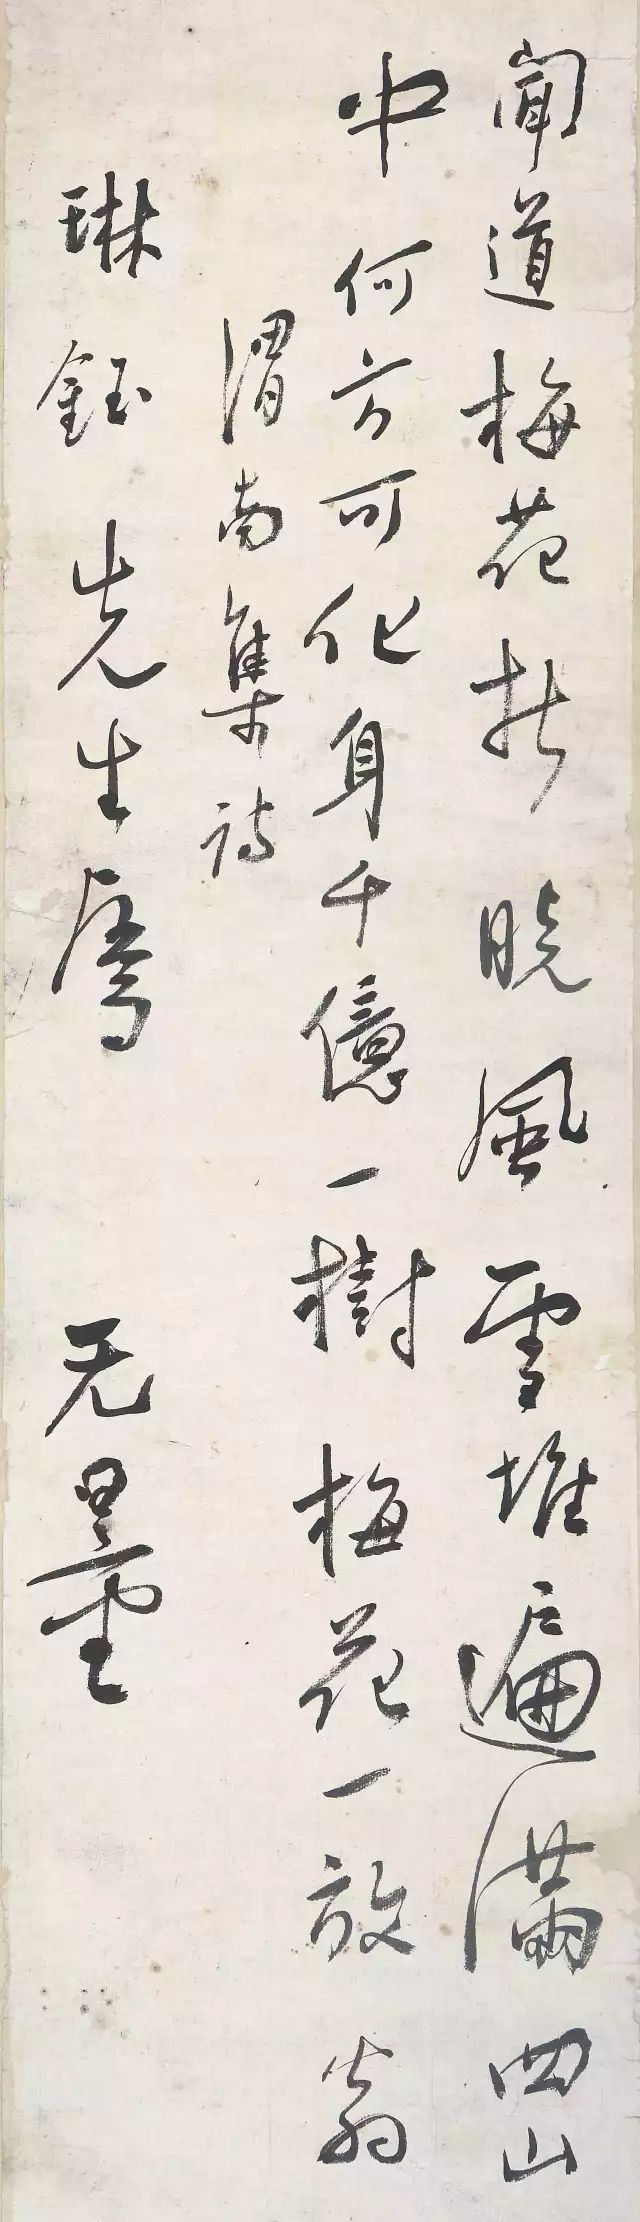 聞道梅花拆曉風雪堆遍滿四山
中何方可化身千億一樹梅花一放翁
渭南集詩
琳鈺先生屬
无量